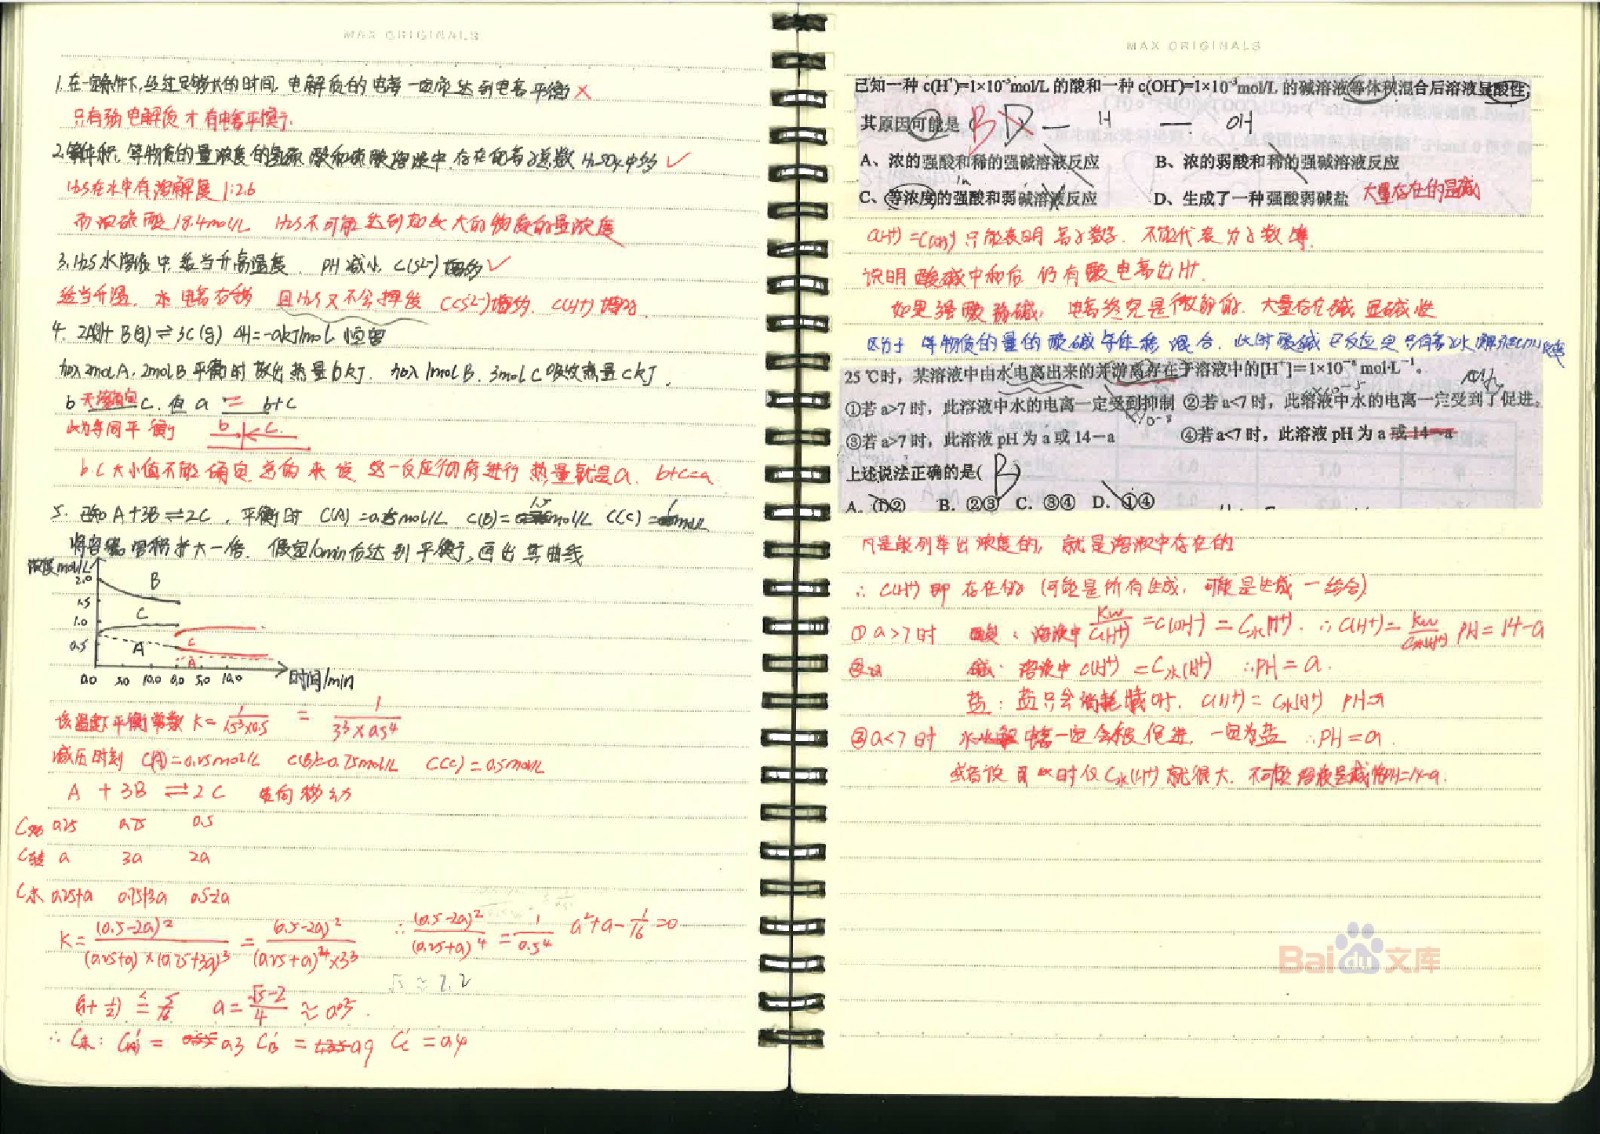 MAX ORIGINALS
1.在一定条件下,经过足够长的时间,电解质的电离一定会达到电离平衡 ×
只有弱电解质才有电离平衡.
2.等体积,等物质的量浓度的氢硫酸和硫酸溶液中,存在的离子总数 H₂SO₄中多 ✓
H₂S在水中有溶解度 1:2.6
而浓硫酸 18.4mol/L H₂S不可能达到如此大的物质的量浓度
3.H₂S水溶液中,适当升高温度、PH减小, C(S²⁻)增多 ✓
适当升温,水电离右移 且H₂S又不会挥发 C(S²⁻)增多, C(H⁺)增多.
4. 2A(g)+B(g)⇌3C(g) ΔH=-akJ/mol 恒容
加入2molA,2molB平衡时放出热量bkJ. 加入1molB、3molC吸收热量ckJ.
b 无法确定 c.但 a = b+c
此为等同平衡 b c
b.c大小值不能确定 b+c=a
5. 已知 A+3B⇌2C,平衡时 C(A)=0.5mol/L C(B)=1.5mol/L C(C)=1mol/L
将容器容积扩大一倍. 假定10min后达到平衡,画出其曲线
浓度mol/L
2.0 B
1.5
C
1.0 C
0.5 A
A
0.0 5.0 10.0 0.0 5.0 10.0 时间/min
该温度下平衡常数 K=1/1.5³×0.5 = 1/3³×0.5⁴
减压时刻 C(A)=0.25mol/L C(B)=0.75mol/L C(C)=0.5mol/L
A + 3B ⇌ 2C 逆向移动
C始 0.25 0.75 0.5
C转 a 3a 2a
C末 0.25+a 0.75+3a 0.5-2a
K=(0.5-2a)²/(0.25+a)×(0.75+3a)³=(0.5-2a)²/(0.25+a)⁴×3³ ∴(0.5-2a)²/(0.25+a)⁴=1/0.5⁴ a²+a-1/16=0
√5≈2.2
a=√5-2/4≈0.05.
∴C末: C'A= 0.3 C'B= 0.9 C'C=0.4
MAX ORIGINALS
已知一种 c(H⁺)=1×10⁻³mol/L 的酸和一种 c(OH⁻)=1×10⁻³mol/L 的碱溶液等体积混合后溶液显酸性,
其原因可能是 B D — H — OH
A、浓的强酸和稀的强碱溶液反应 B、浓的弱酸和稀的强碱溶液反应
C、等浓度的强酸和弱碱溶液反应 D、生成了一种强酸弱碱盐 大量存在的显碱
C(H⁺)=C(OH⁻)只能表明离子数,不能代表分子数
说明酸碱中和后 仍有酸电离出H⁺.
如果强酸弱碱, 电离终究是微弱的. 大量存在碱 显碱性
等物质的量的酸碱等体积混合.此时酸碱已反应完
25 ℃时,某溶液中由水电离出来的并游离存在于溶液中的[H⁺]=1×10⁻ᵃ mol·L⁻¹。
①若 a>7 时,此溶液中水的电离一定受到抑制 ②若 a<7 时,此溶液中水的电离一定受到了促进。
③若 a>7 时,此溶液 pH 为 a 或 14-a ④若 a<7 时,此溶液 pH 为 a 或 14-a
上述说法正确的是( B
A. ①② B. ②③ C. ③④ D. ①④
凡是能列举出浓度的,就是溶液中存在的
∴ C(H⁺)即存在的 (可能是所有生成,可能是生成一结合)
① a>7时 酸: 溶液中 Kw/C(H⁺)=C(OH⁻)=C水(H⁺). ∴C(H⁺)=Kw/C水(H⁺) PH=14-a
碱:溶液中C(H⁺)=C水(H⁺) ∴PH=a.
盐:盐只会消耗 C(H⁺)=C水(H⁺) PH=a
②a<7时 水电离一定会被促进,一定为盐 ∴PH=a.
或者说 此时仅C水(H⁺)就很大,不可能溶液是碱的PH=14-a.
Baidu文库